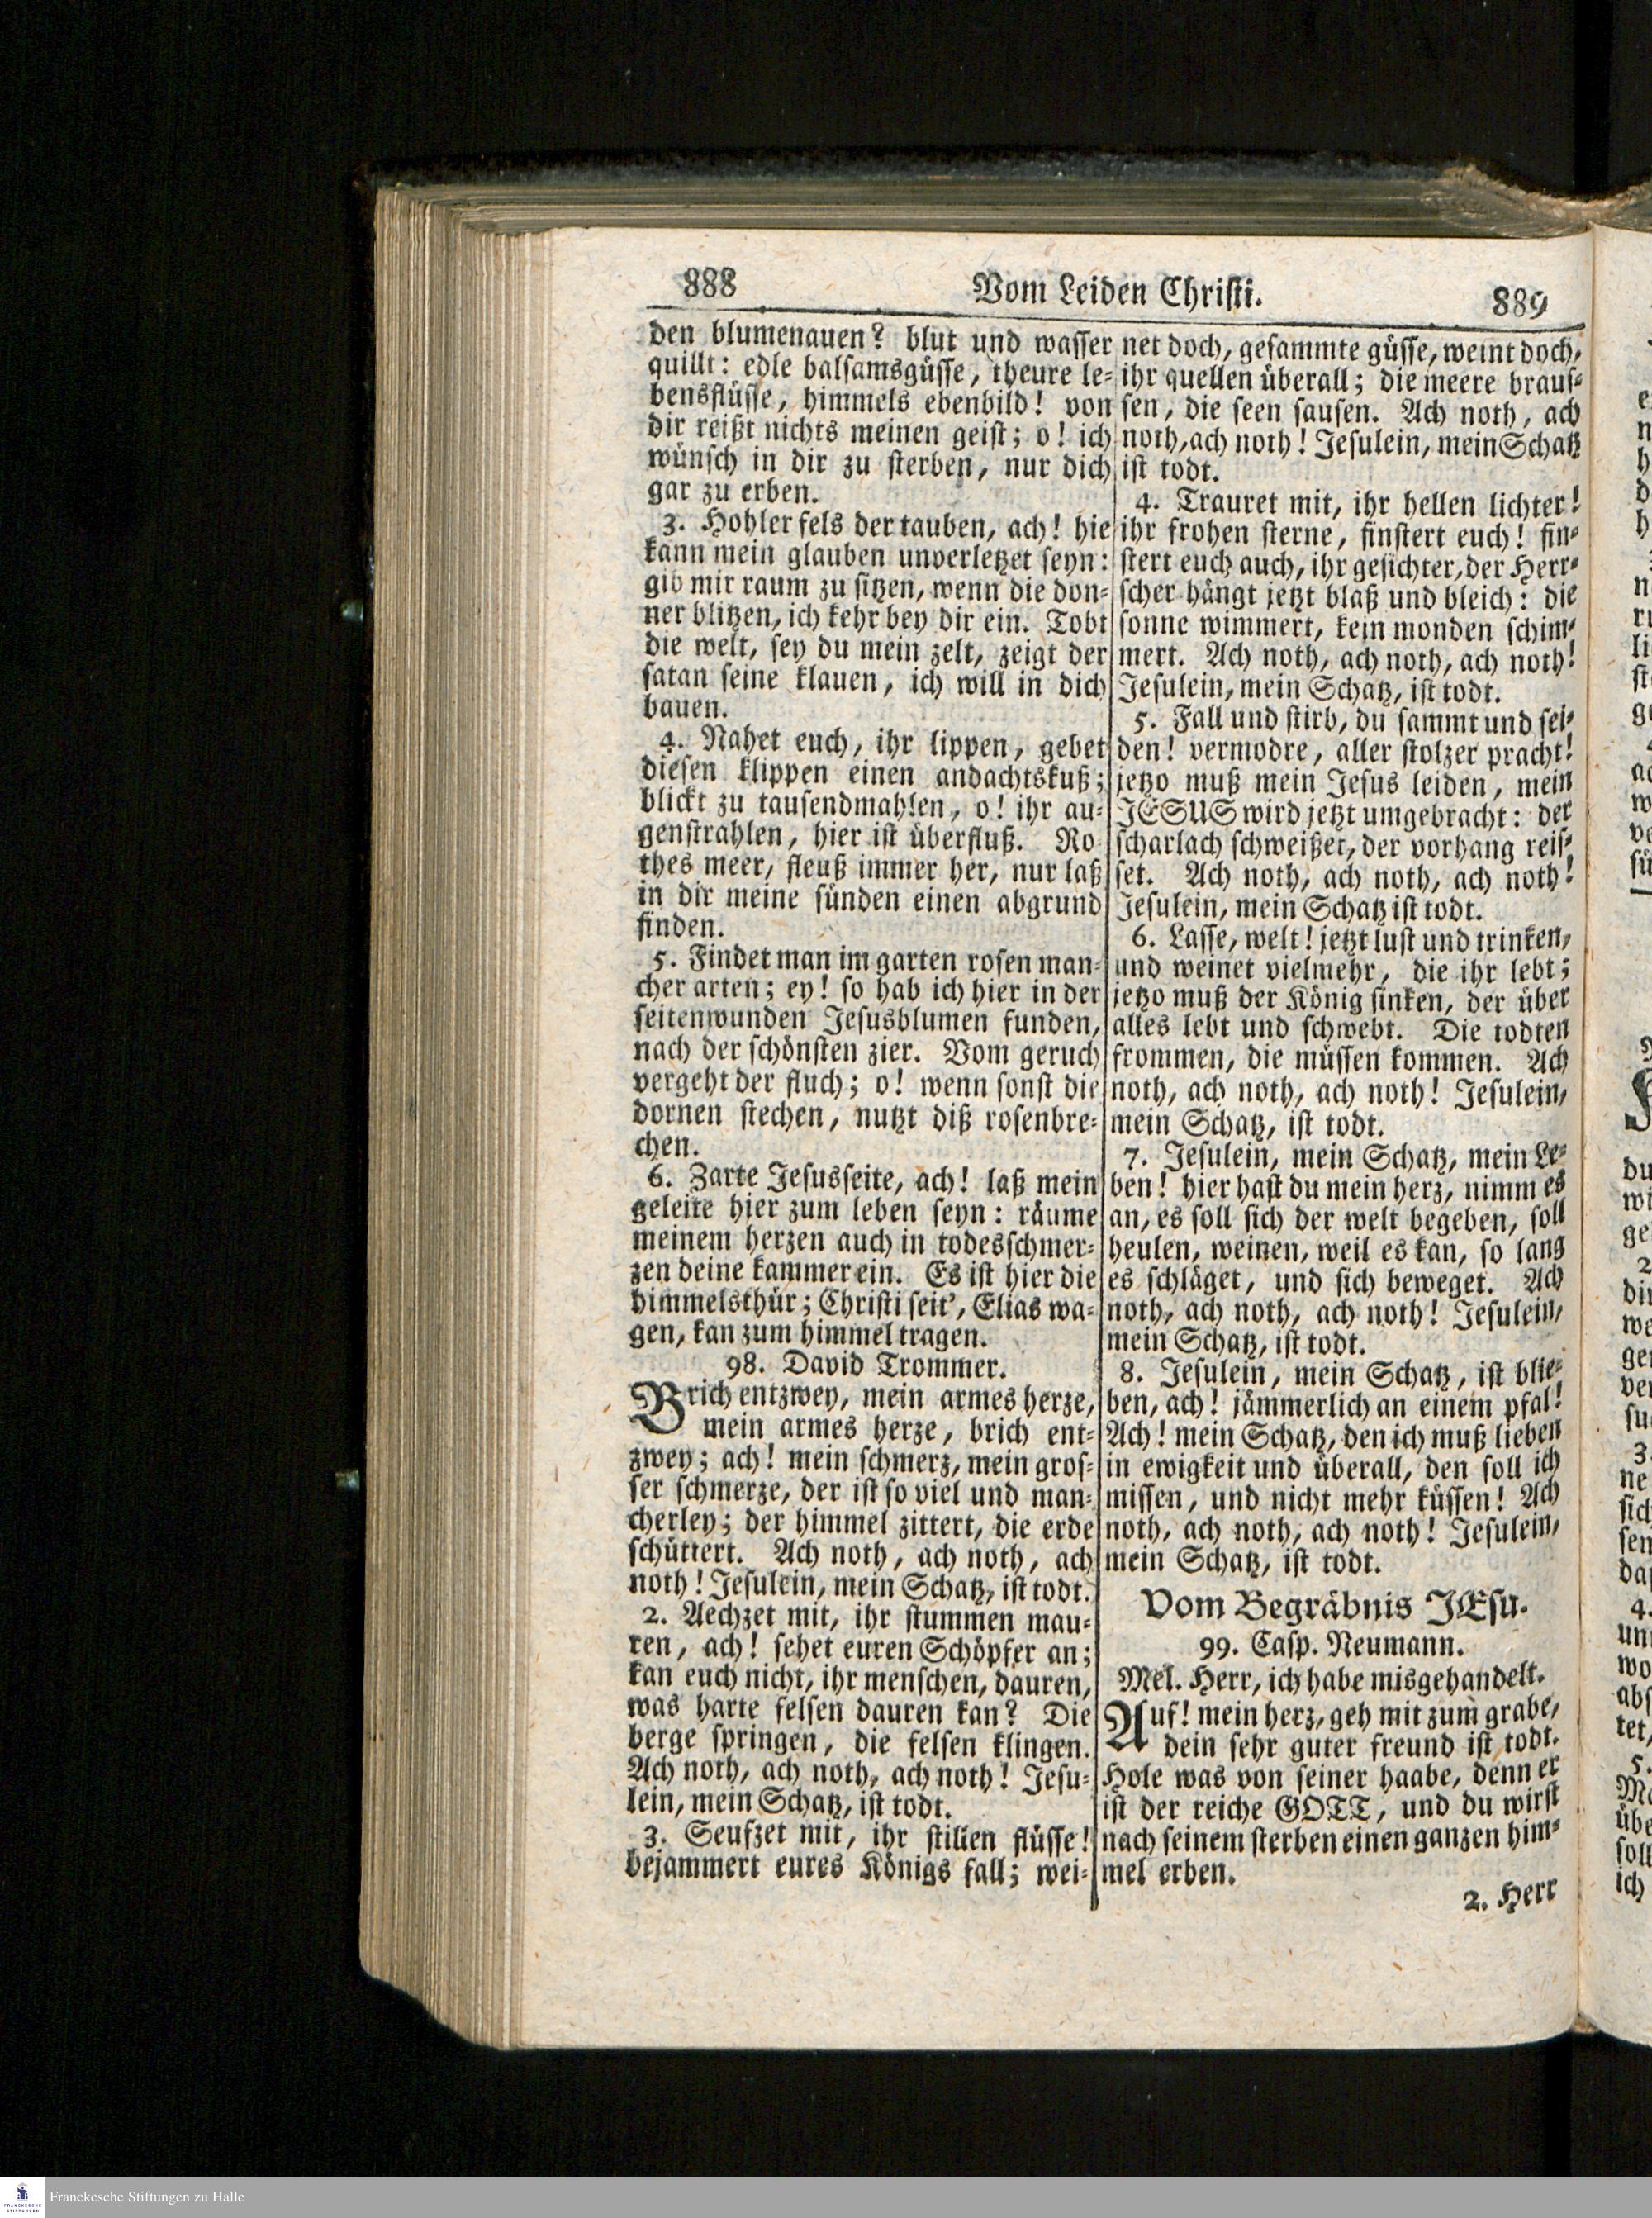 888 Vom Leiden Christi. 889
den blumenauen? blut und wasser
quillt: edle balsamsgüsse, theure le-
bensflüsse, himmels ebenbild! von
dir reißt nichts meinen geist; o! ich
wünsch in dir zu sterben, nur dich
gar zu erben.
3. Hohler fels der tauben, ach! hie
kann mein glauben unverletzet seyn:
gib mir raum zu sitzen, wenn die don-
ner blitzen, ich kehr bey dir ein. Tobt
die welt, sey du mein zelt, zeigt der
satan seine klauen, ich will in dich
bauen.
4. Nahet euch, ihr lippen, gebet
diesen klippen einen andachtskuß;
blickt zu tausendmahlen, o! ihr au-
genstrahlen, hier ist überfluß. Ro-
thes meer, fleuß immer her, nur laß
in dir meine sünden einen abgrund
finden.
5. Findet man im garten rosen man-
cher arten; ey! so hab ich hier in der
seitenwunden Jesusblumen funden,
nach der schönsten zier. Vom geruch
vergeht der fluch; o! wenn sonst die
dornen stechen, nutzt diß rosenbre-
chen.
6. Zarte Jesusseite, ach! laß mein
geleite hier zum leben seyn: räume
meinem herzen auch in todesschmer-
zen deine kammer ein. Es ist hier die
himmelsthür; Christi seit', Elias wa-
gen, kan zum himmel tragen.
98. David Trommer.
Brich entzwey, mein armes herze,
mein armes herze, brich ent-
zwey; ach! mein schmerz, mein gros-
ser schmerze, der ist so viel und man-
cherley; der himmel zittert, die erde
schüttert. Ach noth, ach noth, ach
noth! Jesulein, mein Schatz, ist todt.
2. Aechzet mit, ihr stummen mau-
ren, ach! sehet euren Schöpfer an;
kan euch nicht, ihr menschen, dauren,
was harte felsen dauren kan? Die
berge springen, die felsen klingen.
Ach noth, ach noth, ach noth! Jesu-
lein, mein Schatz, ist todt.
3. Seufzet mit, ihr stillen flüsse!
bejammert eures Königs fall; wei-
net doch, gesammte güsse, weint doch,
ihr quellen überall; die meere braus-
sen, die seen sausen. Ach noth, ach
noth, ach noth! Jesulein, mein Schatz
ist todt.
4. Trauret mit, ihr hellen lichter!
ihr frohen sterne, finstert euch! fin-
stert euch auch, ihr gesichter, der Herr-
scher hängt jetzt blaß und bleich: die
sonne wimmert, kein monden schim-
mert. Ach noth, ach noth, ach noth!
Jesulein, mein Schatz, ist todt.
5. Fall und stirb, du sammt und sei-
den! vermodre, aller stolzer pracht!
jetzo muß mein Jesus leiden, mein
JESUS wird jetzt umgebracht: der
scharlach schweißet, der vorhang reis-
set. Ach noth, ach noth, ach noth!
Jesulein, mein Schatz ist todt.
6. Lasse, welt! jetzt lust und trinken,
und weinet vielmehr, die ihr lebt;
jetzo muß der König sinken, der über
alles lebt und schwebt. Die todten
frommen, die müssen kommen. Ach
noth, ach noth, ach noth! Jesulein,
mein Schatz, ist todt.
7. Jesulein, mein Schatz, mein Le-
ben! hier hast du mein herz, nimm es
an, es soll sich der welt begeben, soll
heulen, weinen, weil es kan, so lang
es schläget, und sich beweget. Ach
noth, ach noth, ach noth! Jesulein,
mein Schatz, ist todt.
8. Jesulein, mein Schatz, ist blie-
ben, ach! jämmerlich an einem pfal!
Ach! mein Schatz, den ich muß lieben
in ewigkeit und überall, den soll ich
missen, und nicht mehr küssen! Ach
noth, ach noth, ach noth! Jesulein,
mein Schatz, ist todt.
Vom Begräbnis JEsu.
99. Casp. Neumann.
Mel. Herr, ich habe misgehandelt.
Auf! mein herz, geh mit zum grabe,
dein sehr guter freund ist todt.
Hole was von seiner haabe, denn er
ist der reiche GOTT, und du wirst
nach seinem sterben einen ganzen him-
mel erben.
2. Herr
Franckesche Stiftungen zu Halle